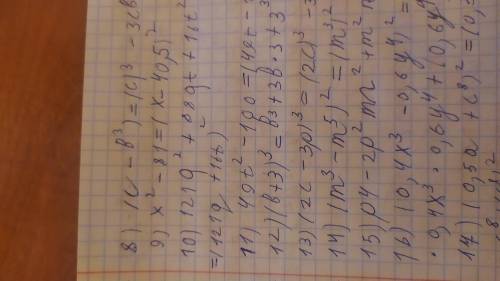 8) (c - b³) = (c)³ - 3cb
9) x² - 81 = (x - 40,5)²
10) 121q² + 88qt + 16t²
= (121q + 16t)²
11) 49t² - 100 = (49t -
12) (b+3)³ = b³ + 3b · 3 + 3
13) (2c - 3p)³ = (2c)³ - 3
14) (m³ - m⁵)² = (m³)²
15) p4 - 2p² m
16) (0,4x³ - 0,6y⁴) =
· 0,4x³ · 0,6y⁴ + (0,6y
17) (0,5a + (8)² = (0,